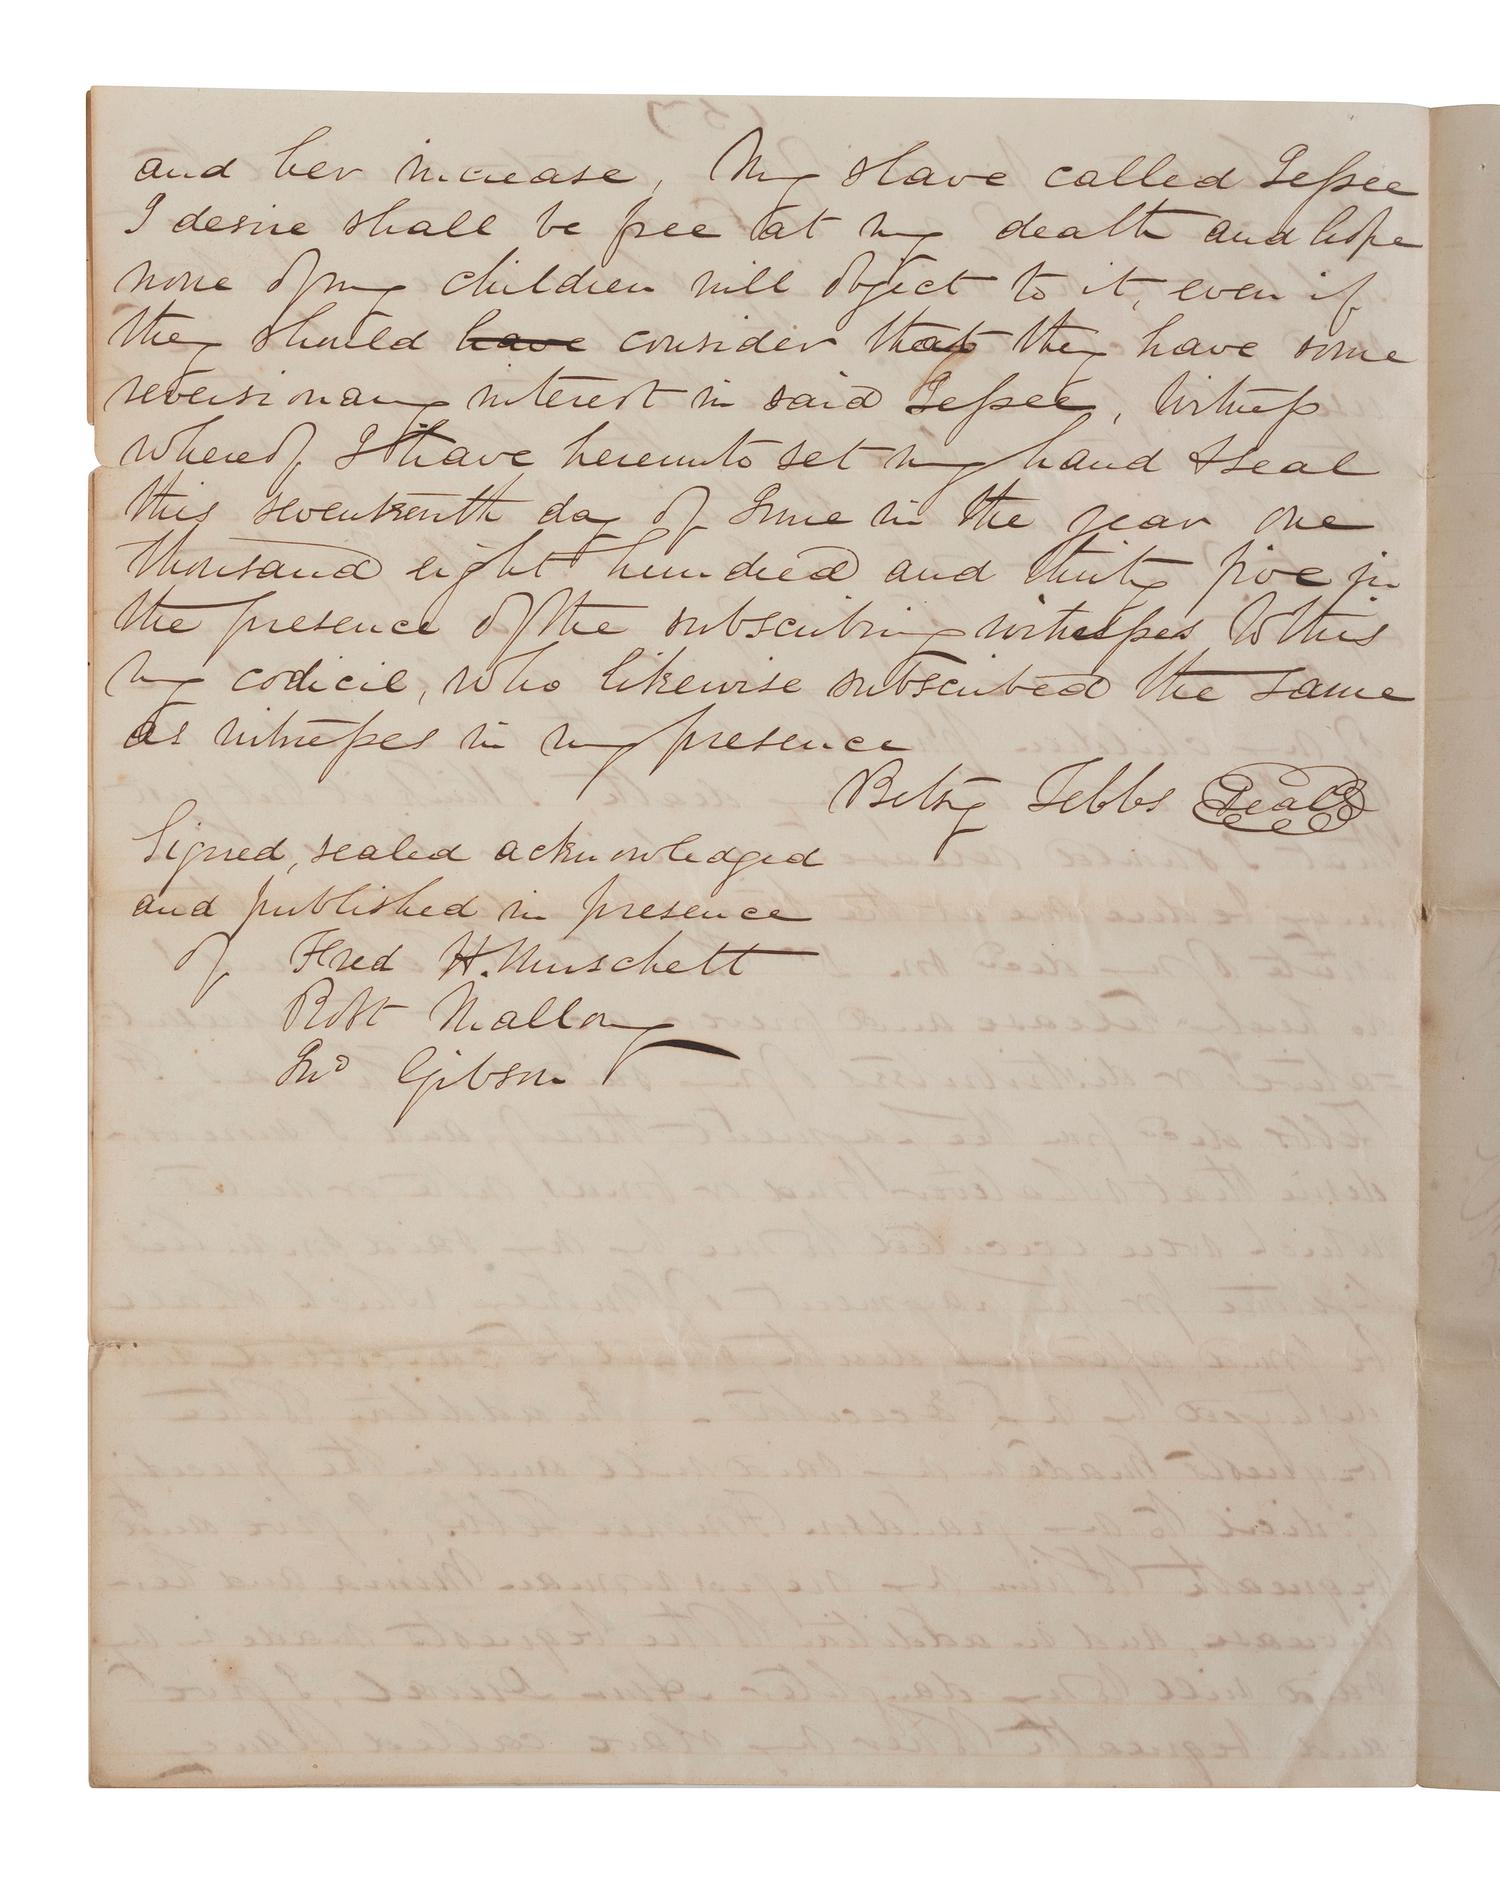 and her increase, My slave called Jessee
I desire shall be free at my death and hope
none of my children will object to it, even if
they should have consider that they have some
reversionary interest in said Jessee, Witness
whereof I have hereunto set my hand & seal
this seventeenth day of June in the year one
thousand eight hundred and thirty five in
the presence of the subscribing witnesses to this
my codicil, who likewise subscribed the same
as witnesses in my presence
Betsy Tebbs Seal
Signed, sealed acknowledged
and published in presence
of Fred H. Muschett
Robt Mallory
Jno Gibson